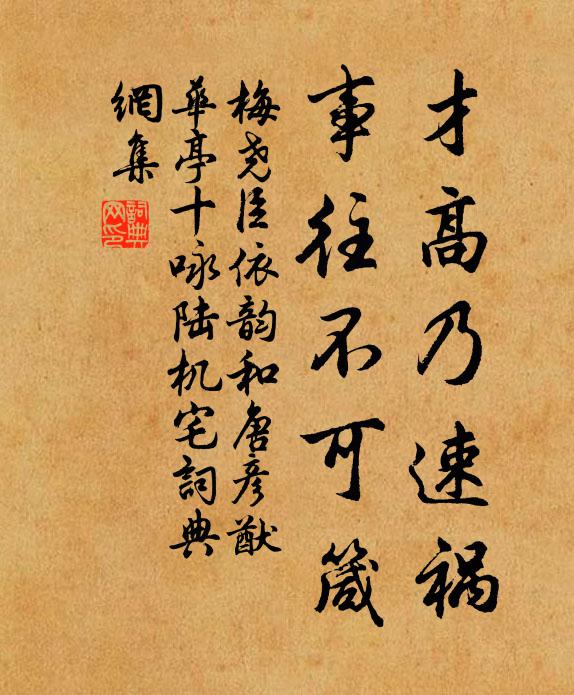 才高乃速祸
事往不可箴
梅尧臣依韵和唐彦猷
华亭十咏陆机宅詞典
網集
詞典网印